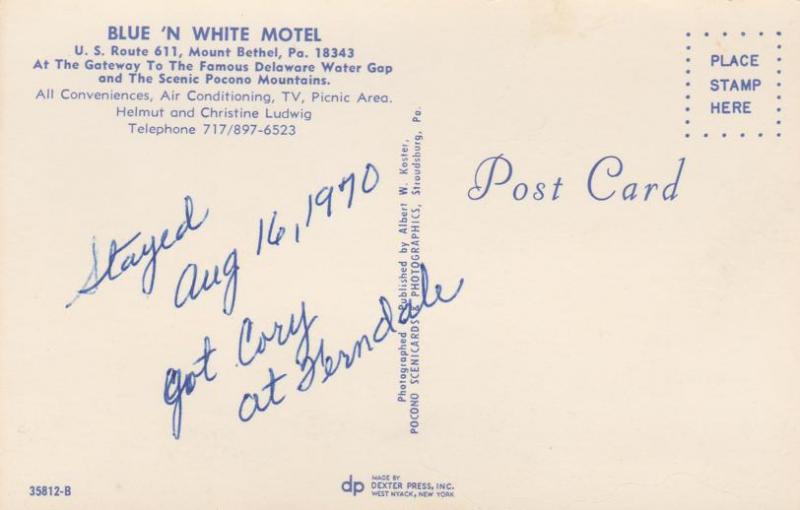 BLUE 'N WHITE MOTEL
U. S. Route 611, Mount Bethel, Pa. 18343
At The Gateway To The Famous Delaware Water Gap
and The Scenic Pocono Mountains.
All Conveniences, Air Conditioning, TV, Picnic Area.
Helmut and Christine Ludwig
Telephone 717/897-6523
PLACE
STAMP
HERE
Post Card
Stayed
Aug 16, 1970
got Cory
at Ferndale
Photographed & Published by Albert W. Koster,
POCONO SCENICARDS & PHOTOGRAPHICS, Stroudsburg, Pa.
35812-B
dp
MADE BY
DEXTER PRESS, INC.
WEST NYACK, NEW YORK